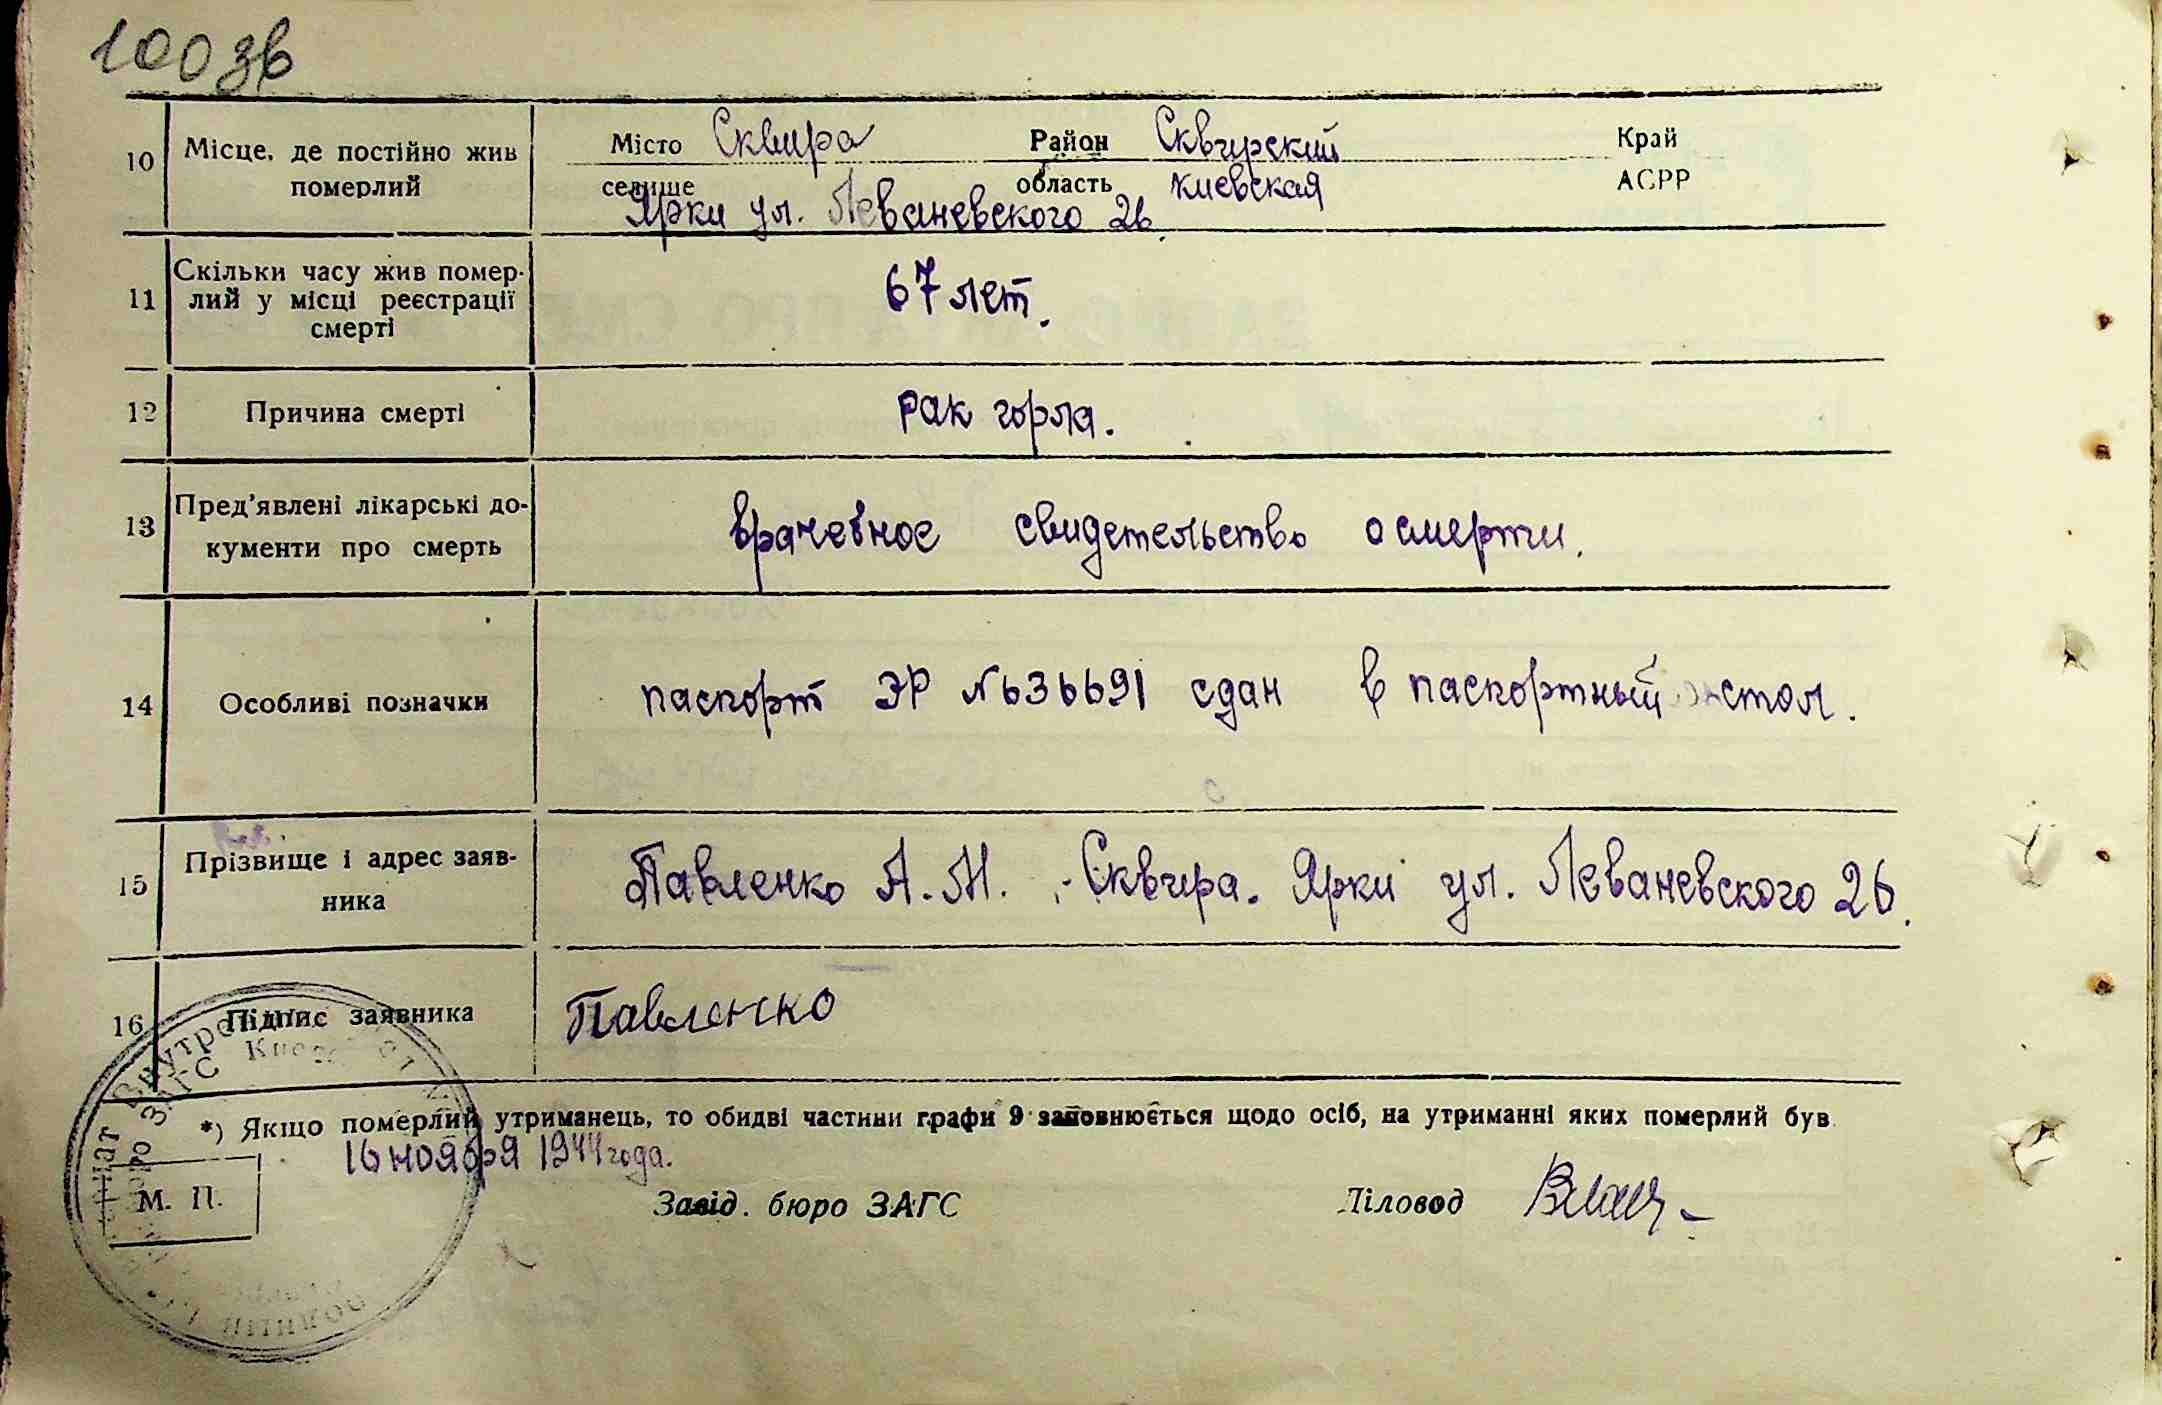 100зв
10 Місце, де постійно жив померлий
Місто Сквира Район Сквирский Край
селище область Киевская АСРР
Ярки ул. Леваневского 26.
11 Скільки часу жив помер-
лий у місці реєстрації
смерті
67 лет.
12 Причина смерті рак горла.
13 Пред'явлені лікарські до-
кументи про смерть
врачебное свидетельство о смерти.
14 Особливі позначки паспорт ЭР №636691 сдан в паспортный стол.
15 Прізвище і адрес заяв-
ника
Павленко А. М. Сквира. Ярки ул. Леваневского 26.
16 Підпис заявника Павленко
*) Якщо померлий утриманець, то обидві частини графи 9 заповнюється щодо осіб, на утриманні яких померлий був
16 ноября 1944 года.
М. П. Завід. бюро ЗАГС Діловод